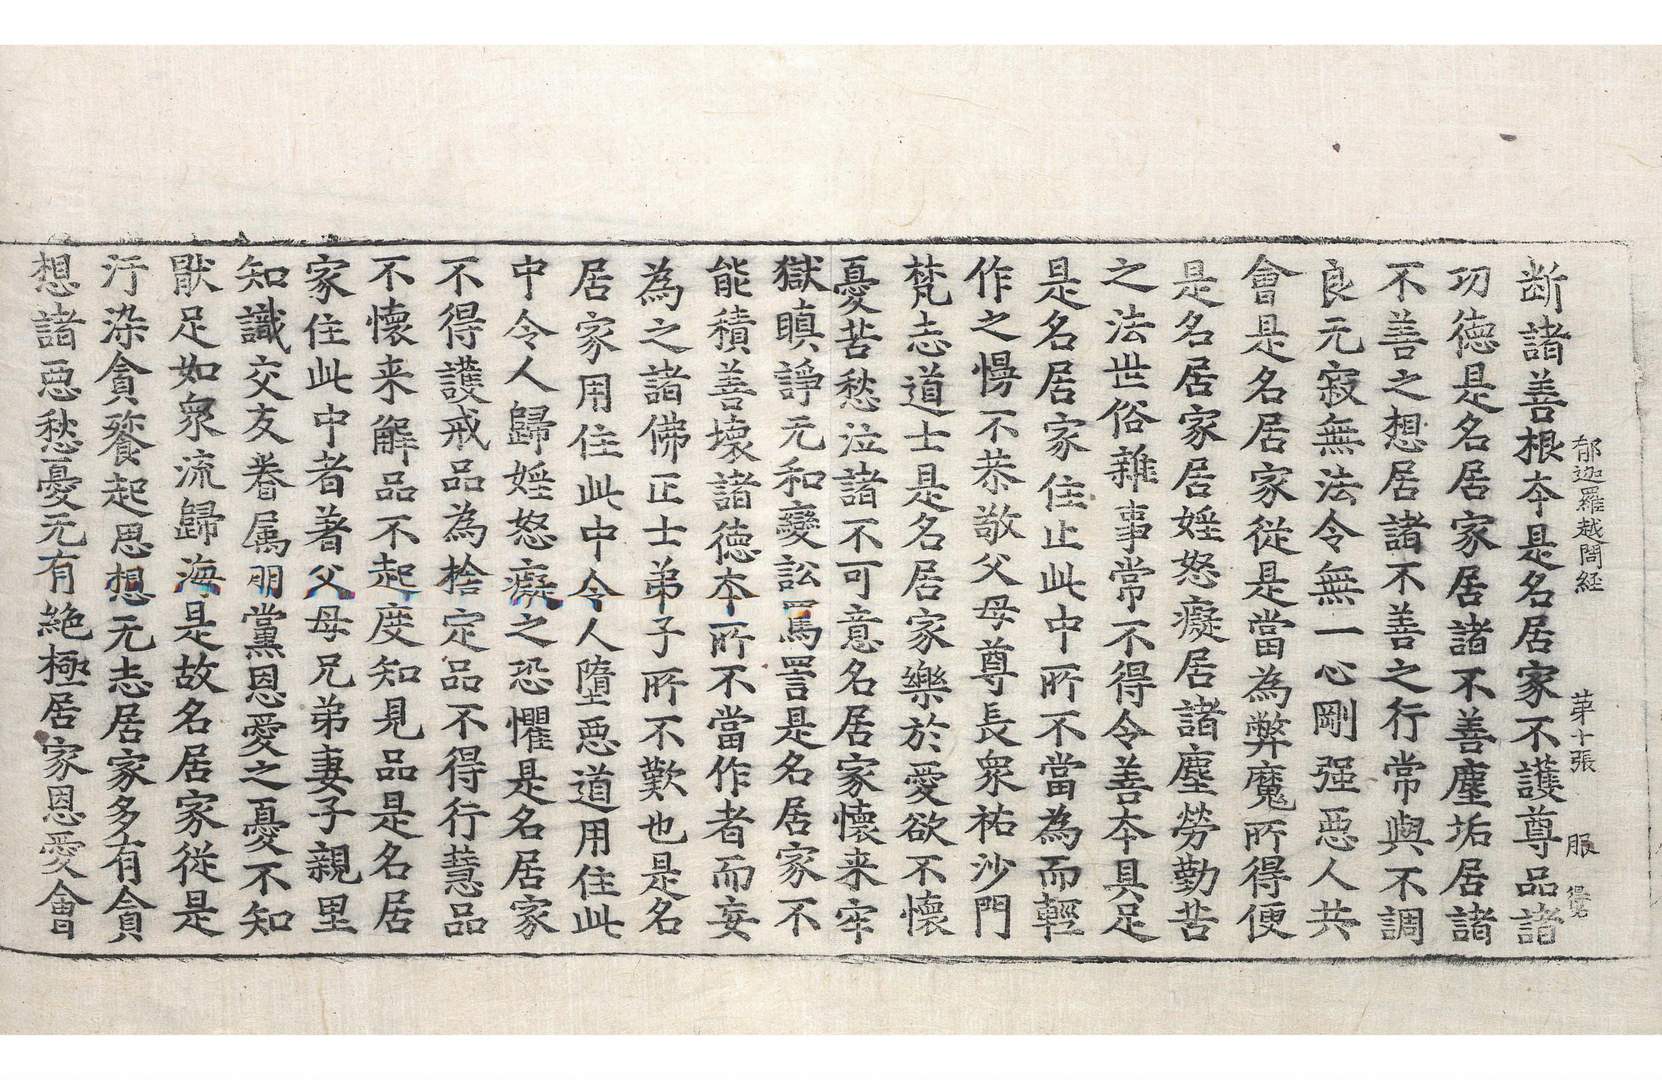 郁迦羅越問経 苐十張 服
断諸善根夲是名居家不護尊品諸
功徳是名居家居諸不善塵垢居諸
不善之想居諸不善之行常與不調
良元寂無法令無一心剛强惡人共
會是名居家従是當為弊魔所得便
是名居家居婬怒癡居諸塵勞勤苦
之法世俗雜事常不得令善夲具足
是名居家住止此中所不當為而輕
作之慢不恭敬父母尊長衆祐沙門
梵志道士是名居家樂於愛欲不懐
憂苦愁泣諸不可意名居家懐来牢
獄瞋諍元和變訟罵詈是名居家不
能積善壊諸徳本所不當作者而妄
為之諸佛正士弟子所不歎也是名
居家用住此中令人墮惡道用住此
中令人歸婬怒癡之恐懼是名居家
不得護戒品為捨定品不得行慧品
不懐来解品不起度知見品是名居
家住此中者著父母兄弟妻子親里
知識交友眷属朋黨恩愛之憂不知
猒足如衆流歸海是故名居家従是
汙染貪餮起思想元志居家多有貪
想諸惡愁憂元有絶極居家恩愛會